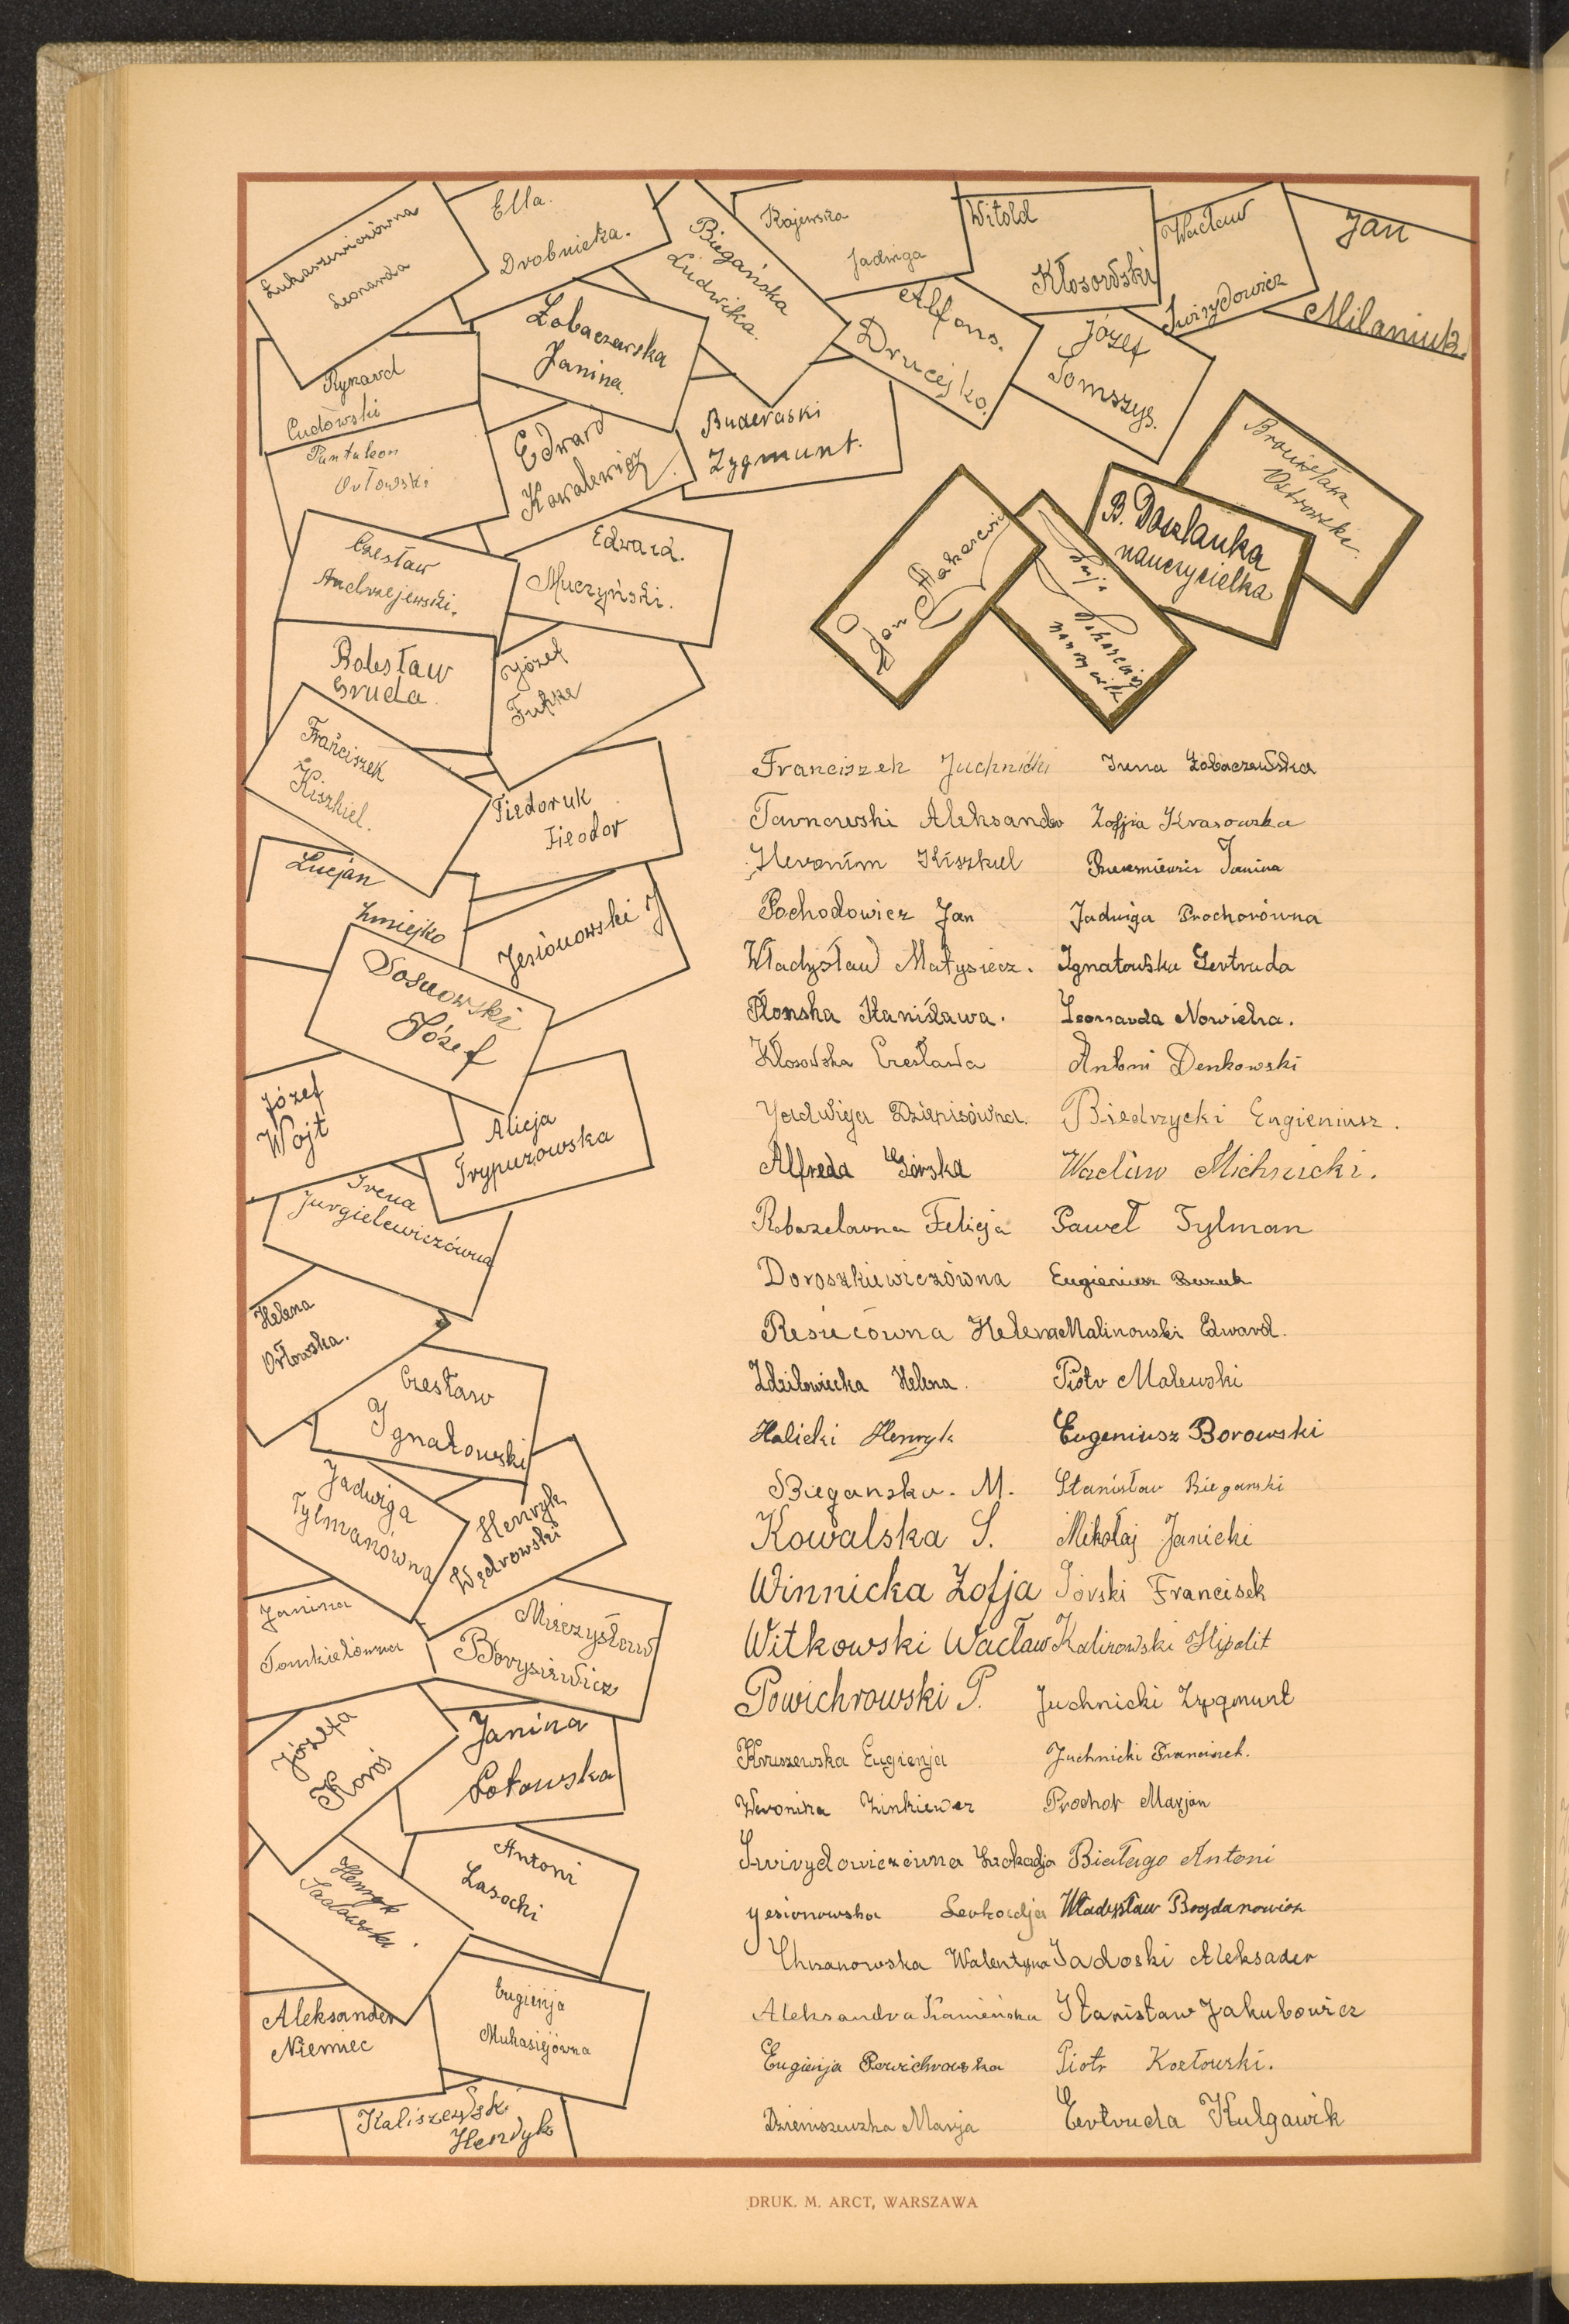 Łukaszewiczówna
Leonarda
Ella.
Drobnicka.
Biegańska
Ludwika.
Rajewska
Jadwiga
Witold
Kłosowski
Wacław
Swirydowicz
Jan
Milaniuk.
Ryszard
Cudowski
Łobaczewska
Janina.
Alfons.
Drucejko.
Józef
Tomszys.
Pantaleon
Orłowski
Edward
Kowalewicz
Buderaski
Zygmunt.
Bronisława
Ostrowska.
B. Doszlanka
nauczycielka
Jan Makarewicz
Czesław
Andrzejewski.
Edward.
Muczyński.
Bolesław
Gruda
Józef
Franciszek
Kiszkiel.
Fiedoruk
Fieodor
Lucjan
Żmiejko
Jesionowski J
Sosnowski
Józef
Józef
Wojt
Alicja
Trypuzowska
Irena
Jurgielewiczówna
Helena
Orłowska.
Czesław
Ignatowski
Jadwiga
Tylmanówna
Henryk
Wędrowski
Janina
Tomkielówna
Mieczysław
Borysiewicz
Józefa
Koroś
Janina
Łotowska
Henryk
Sadowski.
Antoni
Lasocki
Aleksander
Niemiec
Eugienja
Mukasiejówna
Kaliszewski
Henryk
Franciszek Juchnicki Irena Łobaczewska
Tarnowski Aleksander Zofja Krasowska
Heronim Kiszkiel Janina
Pochodowicz Jan Jadwiga Prochorówna
Władysław Matysiecz. Ignatowska Gertruda
Płonska Stanisława. Leonarda Nowicka.
Kłosowska Czesława Antoni Denkowski
Jadwiga Dzienisówna. Biedrzycki Eugieniusz.
Alfreda Górska Wacław Michnicki.
Felicja Paweł Tylman
Doroszkiewiczówna Eugieniusz Buzuk
Resiecówna Helena Malinowski Edward.
Zdziłowiecka Helena. Piotr Malewski
Halicki Henryk Eugeniusz Borowski
Biegańska. M. Stanisław Biegański
Kowalska S. Mikołaj Janicki
Winnicka Zofja Górski Francisek
Witkowski Wacław Kalinowski Hipolit
Powichrowski P. Juchnicki Zygmunt
Kruszewska Eugienja Juchnicki Franciszek.
Weronika Zinkiewicz Prochor Marjan
Swirydowiczówna Leokadja Białago Antoni
Jesionowska Leokadja Władysław Bogdanowicz
Chrzanowska Walentyna Sadoski Aleksader
Aleksandra Kamieńska Stanisław Jakubowicz
Eugienja Powichrowska Piotr Kozłowski.
Dzieniszewska Marja Gertruda Kulgawik
DRUK. M. ARCT, WARSZAWA